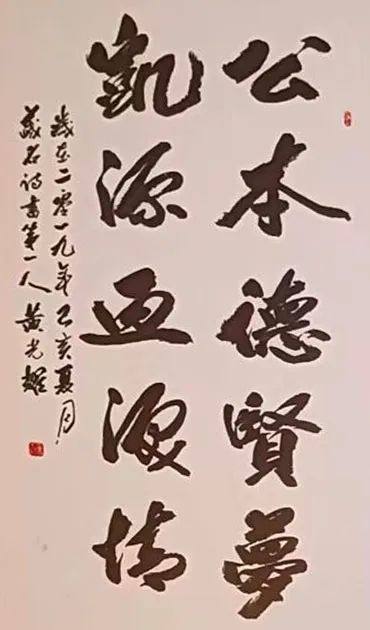 公本德賢夢
凱源血淚情
歲在二零一九年己亥夏月
藏名詩書第一人 黄光耀